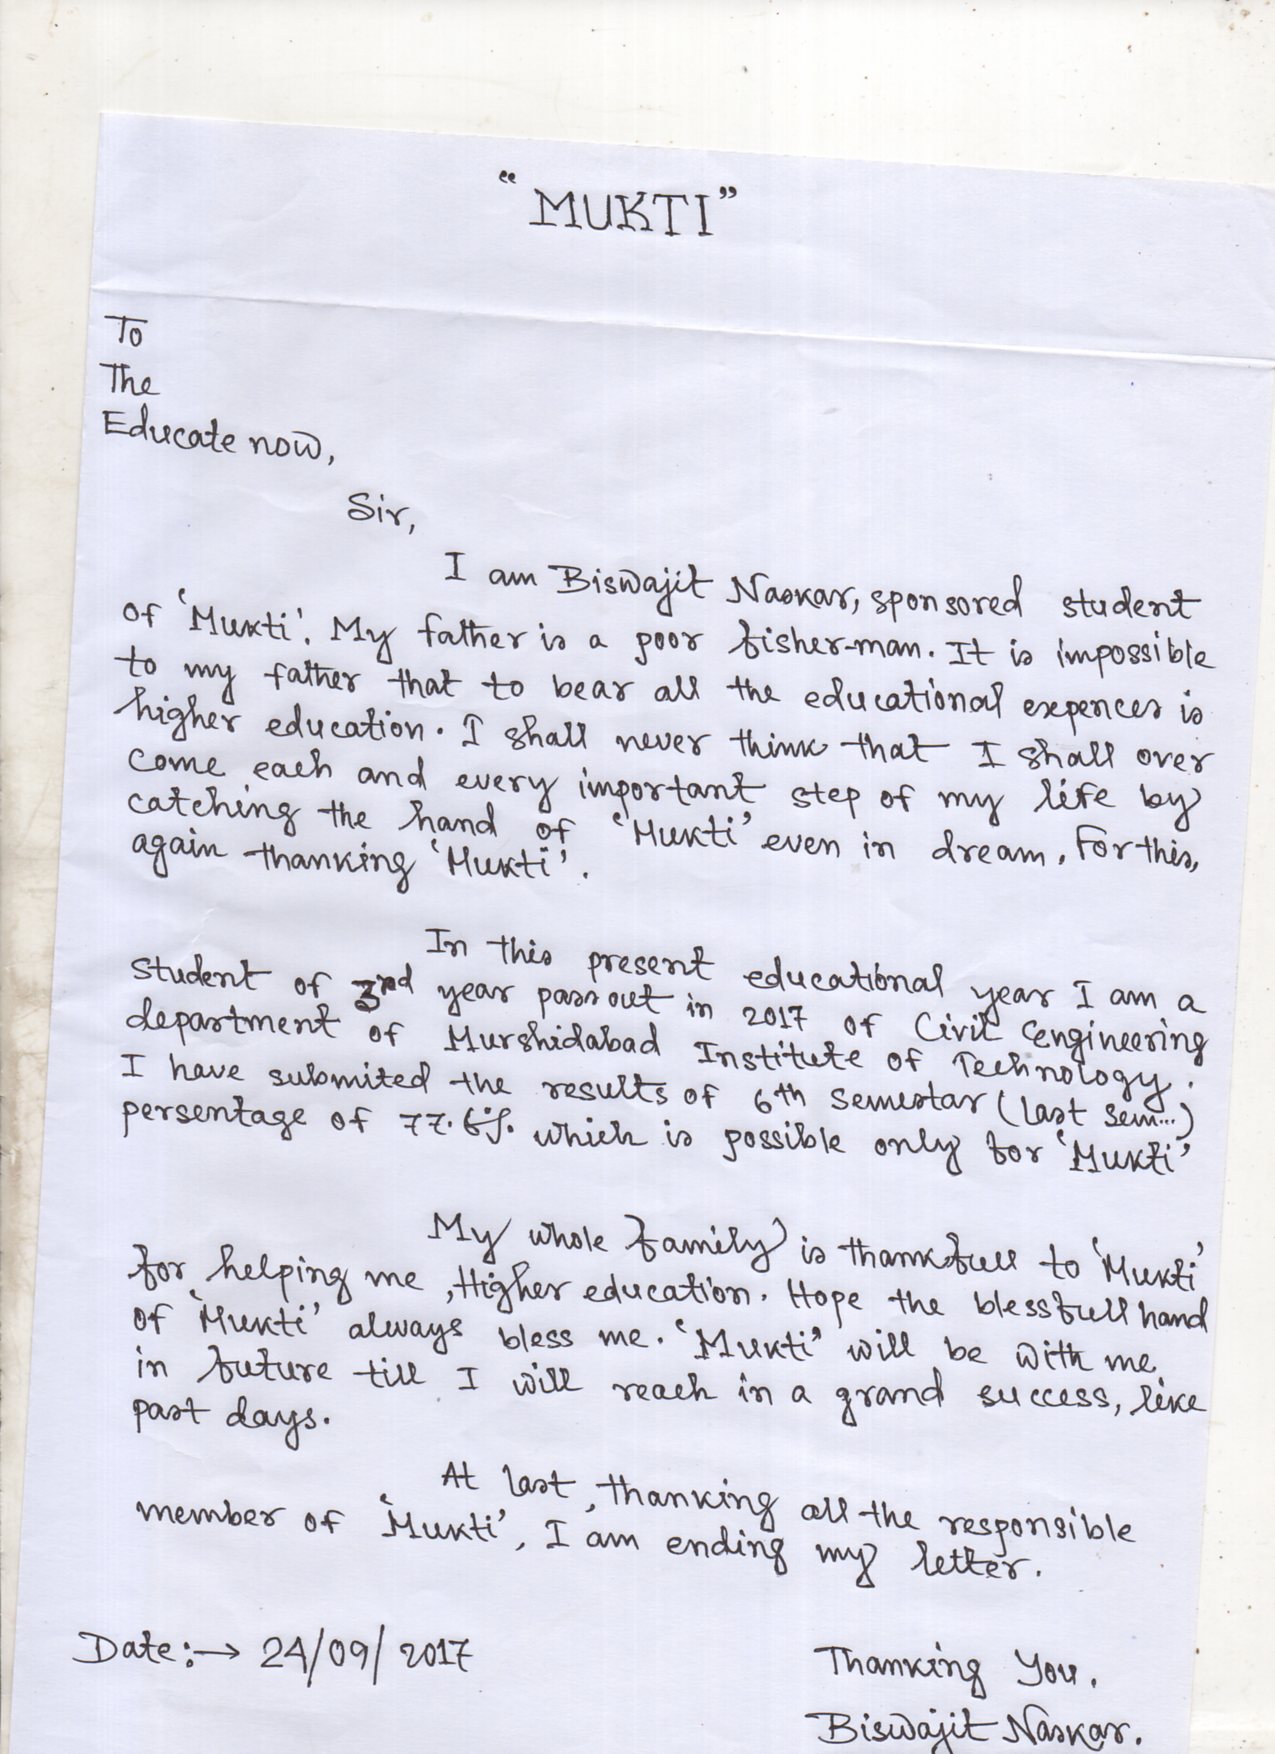 “MUKTI”
To
The
Educate now,
Sir,
I am Biswajit Naskar, sponsored student
of ‘Mukti’. My father is a poor fisher-man. It is impossible
to my father that to bear all the educational expences is
higher education. I shall never think that I shall over
come each and every important step of my life by
catching the hand of ‘Mukti’ even in dream. For this,
again thanking ‘Mukti’.
In this present educational year I am a
student of 3rd year pass out in 2017 of Civil Engineering
department of Murshidabad Institute of Technology.
I have submited the results of 6th semestar (last sem...)
persentage of 77.6%. which is possible only for ‘Mukti’
My whole family is thankfull to ‘Mukti’
for helping me, Higher education. Hope the blessfull hand
of ‘Mukti’ always bless me. ‘Mukti’ will be with me
in future till I will reach in a grand success, like
past days.
At last, thanking all the responsible
member of ‘Mukti’, I am ending my letter.
Date:→ 24/09/2017
Thanking You.
Biswajit Naskar.